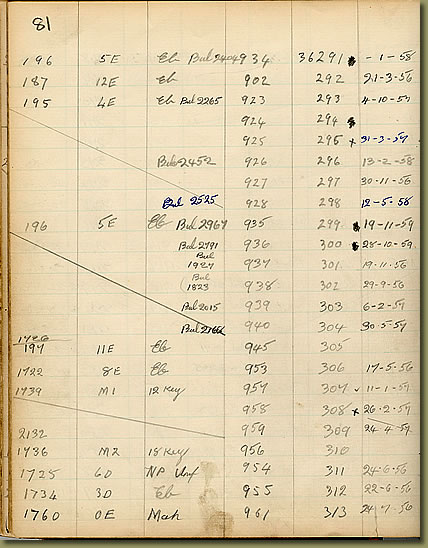 81
196 5E Eb Bul 2404 934 36291 - 1 - 58
187 12E Eb 902 292 21-3-56
195 4E Eb Bul 2265 923 293 4-10-57
924 294
925 295 x 31-3-57
Bul 2452 926 296 13-2-58
927 297 30-11-56
Bul 2525 928 298 12-5-58
196 5E Eb Bul 2967 935 299 19-11-59
Bul 2791 936 300 28-10-59
Bul 1927 937 301 19-11-56
Bul 1823 938 302 29-9-56
Bul 2015 939 303 6-2-57
Bul 940 304 30-5-57
1726
197 11E Eb 945 305
1722 8E Eb 953 306 17-5-56
1739 M1 12 Key 957 307 11-1-57
958 308 x 26-2-57
2132 959 309 24-4-57
1736 M2 18 Key 956 310
1725 6D NP 954 311 24-6-56
1734 3D Eb 955 312 22-6-56
1760 0E Mah 961 313 24-7-56